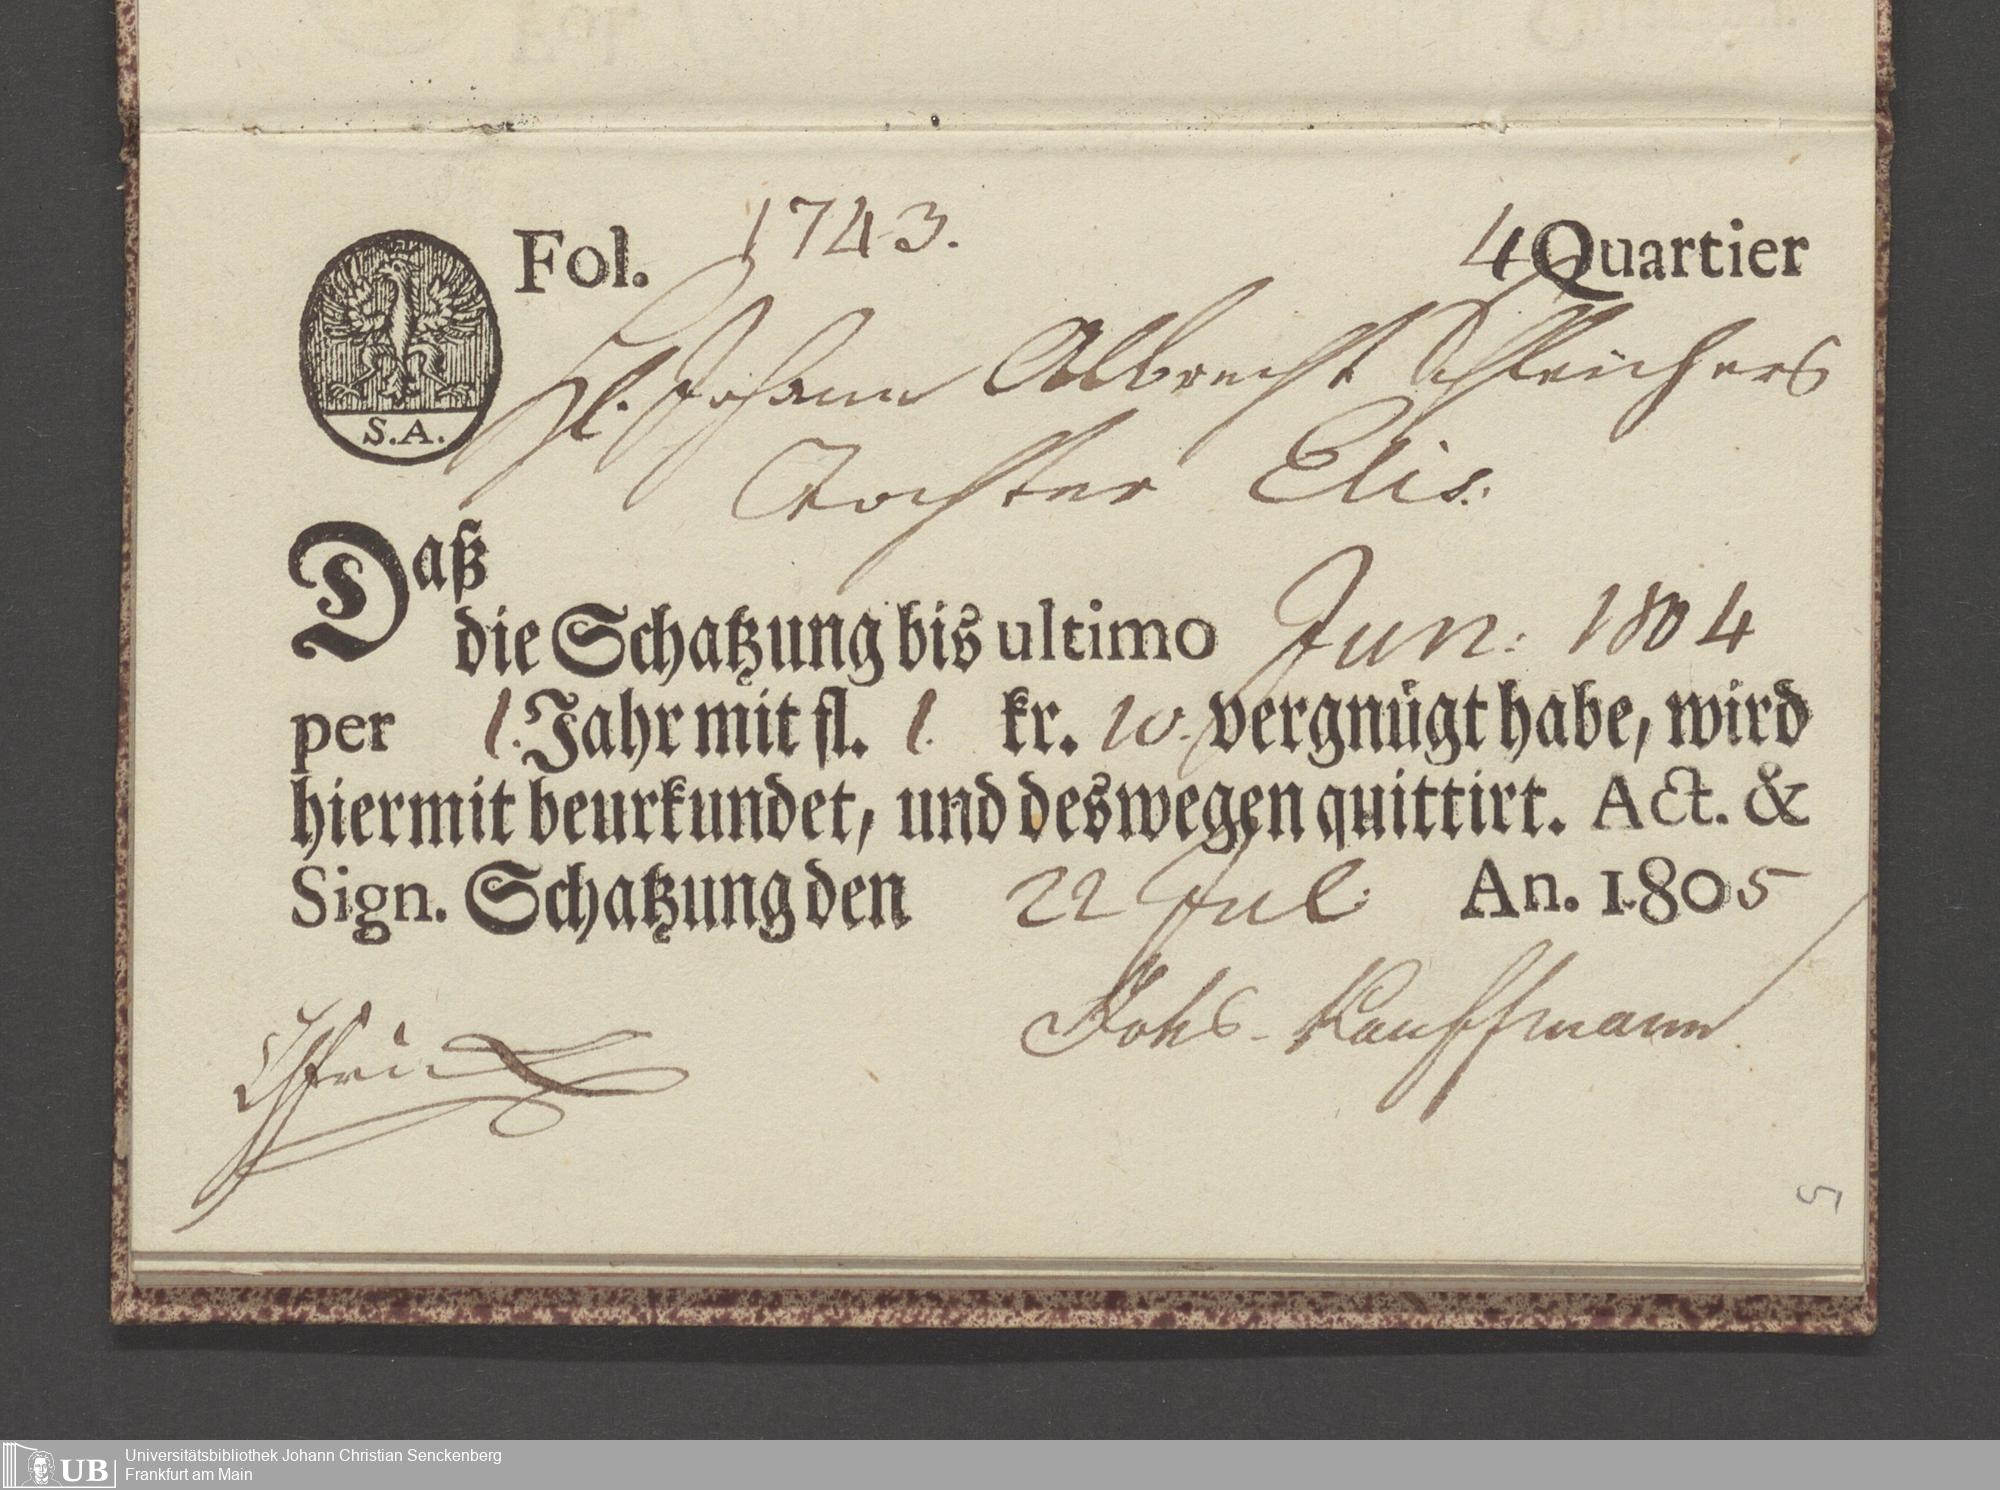 Fol. 1743. 4 Quartier
S. A.
Hl. Johann Albrecht Schleichers
Tochter Elis:
Daß
die Schatzung bis ultimo Jun: 1804
per 1. Jahr mit fl. 1. kr. 10. vergnügt habe, wird
hiermit beurkundet, und deswegen quittirt. Act. &
Sign. Schatzung den 22 Jul: An. 1805
Johs. Kauffmann
5
UB
Universitätsbibliothek Johann Christian Senckenberg
Frankfurt am Main